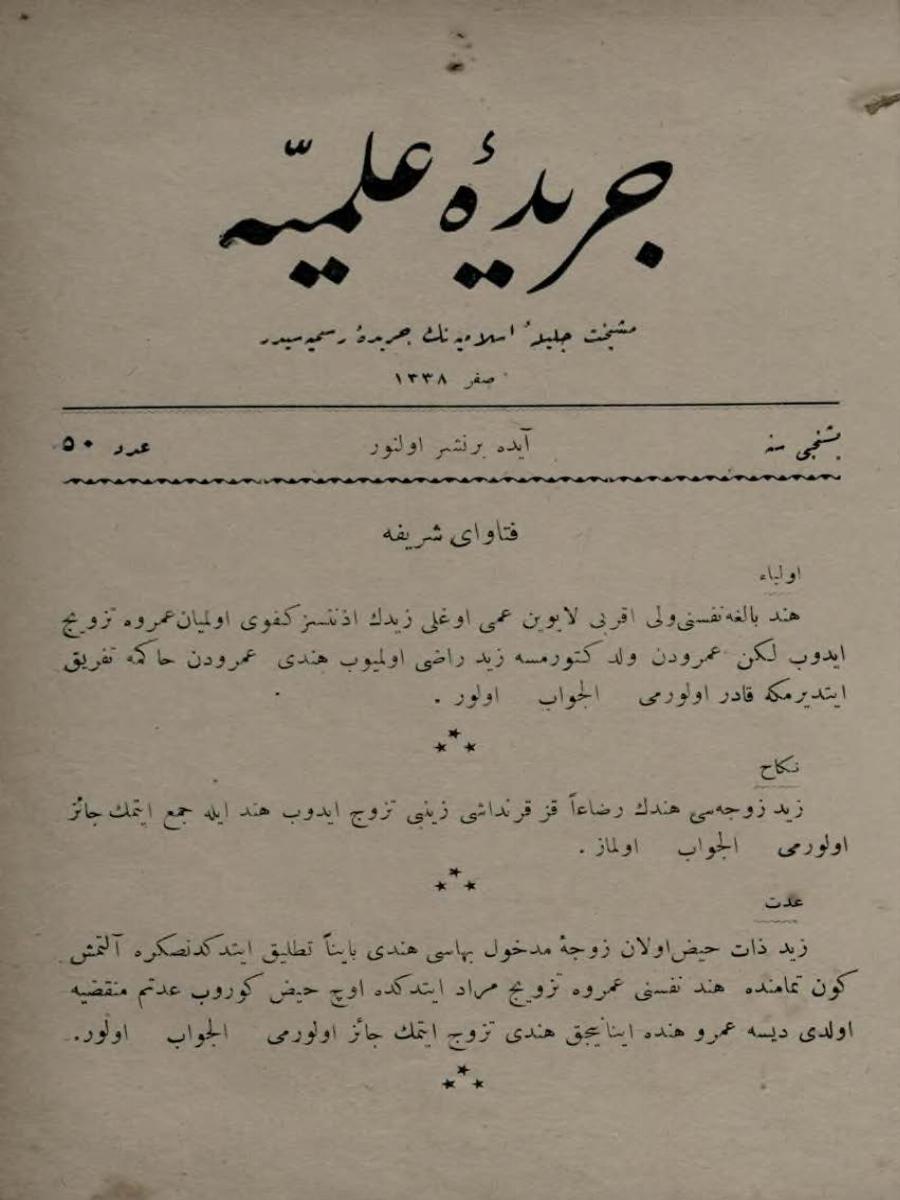 جريدۀ علميّه
مشيخت جليلۀ اسلاميه نك جريدۀ رسميه سيدر
صفر ١٣٣٨
بشنجى سنه آيده برنشر اولنور عدد ٥٠
فتاواى شريفه
اولياء
هند بالغه نفسنى ولى اقربى لابوين عمى اوغلى زيدك اذنتسز كفوى اولميان عمروه تزويج
ايدوب لكن عمرودن ولد كتورمسه زيد راضى اولميوب هندى عمرودن حاكمه تفريق
ايتديرمكه قادر اولورمى الجواب اولور .
٭٭٭
نكاح
زيد زوجه سى هندك رضاعاً قز قرنداشى زينبى تزوج ايدوب هند ايله جمع ايتمك جائز
اولورمى الجواب اولماز .
٭٭٭
عدت
زيد ذات حيض اولان زوجۀ مدخول بهاسى هندى بايناً تطليق ايتدكدنصكره آلتمش
كون تمامنده هند نفسنى عمروه تزويج مراد ايتدكده اوچ حيض كوروب عدتم منقضيه
اولدى ديسه عمرو هنده اينانيجق هندى تزوج ايتمك جائز اولورمى الجواب اولور.
٭٭٭